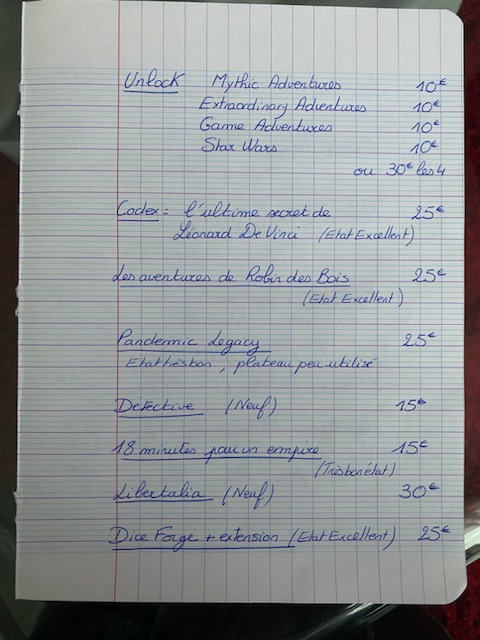 Unlock Mythic Adventures 10€
Extraordinary Adventures 10€
Game Adventures 10€
Star Wars 10€
ou 30€ les 4
Codex = l'ultime secret de 25€
Léonard De Vinci (Etat Excellent)
Les aventures de Robin des Bois 25€
(Etat Excellent)
Pandemic Legacy 25€
Etat très bon, plateau peu utilisé
Detective (Neuf) 15€
18 minutes pour un empire 15€
(Très bon état)
Libertalia (Neuf) 30€
Dice Forge + extension (Etat Excellent) 25€